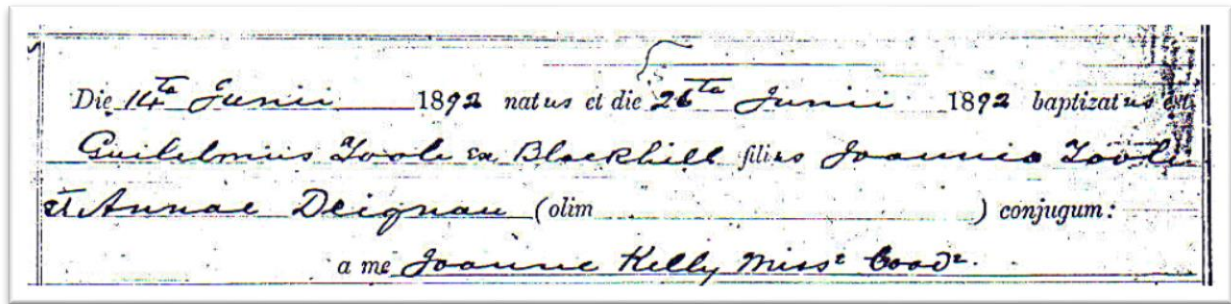 Die 14ta Junii 1892 natus et die 26ta Junii 1892 baptizatus est
Guilelmus Toole ex Blackhill filius Joannis Toole
et Annae Deignan (olim ) conjugum:
a me Joanne Kelly Miss. Coad.